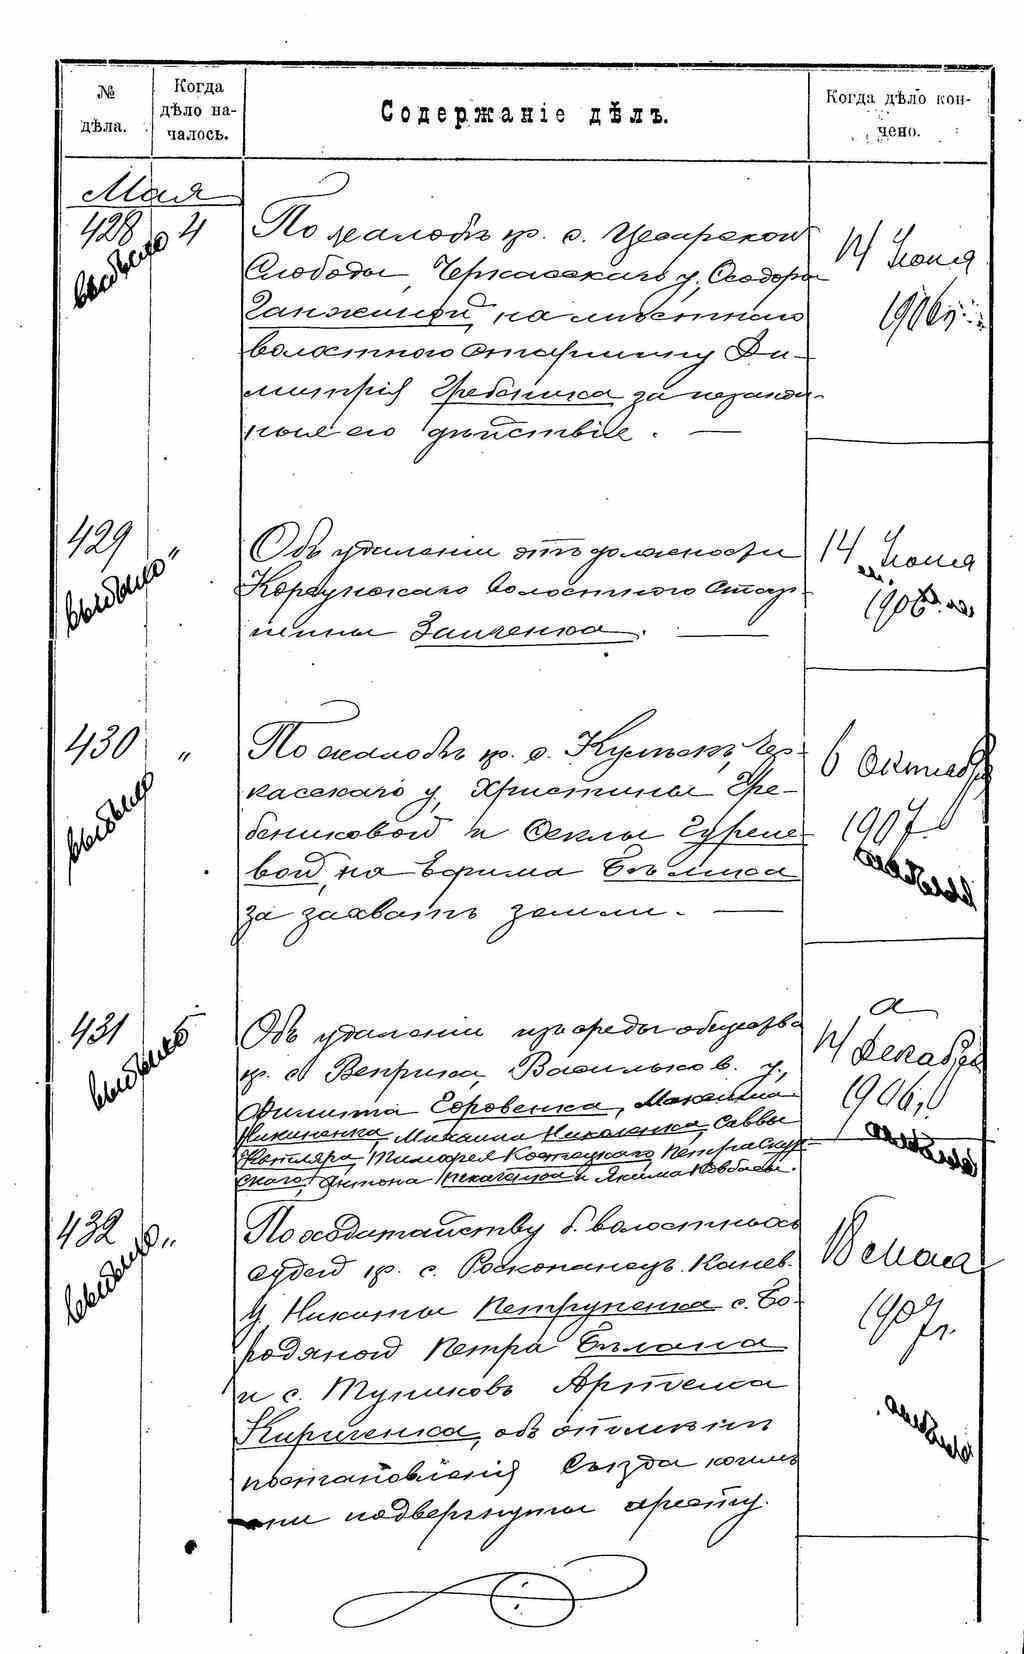 № дѣла.
Когда дѣло на-
чалось.
Содержаніе дѣлъ.
Когда дѣло кон-
чено.
Мая
428 4
выбыло
По жалобѣ кр. с. Цесарской
Слободы, Черкасскаго у, Ѳеодоры
Ганжиной, на мѣстнаго
волостного старшину Ди-
митрія Гребеника за незакон-
ныя его дѣйствія. —
14 Іюня
1906 г.
429 "
выбыло
Объ удаленіи отъ должности
Корсунскаго волостного стар-
шины Заиченка. —
14 Іюня
1906
430 "
выбыло
По жалобѣ кр. с. Чер-
касскаго у, Христины Гре-
бениковой и Ѳеклы
вой, на Ефима Бѣлика
за захватъ земли. —
6 Октября
1907
выбыло
431 5
выбыло
Объ удаленіи изъ среды общества
кр. с. Веприка, Васильков. у,
Филиппа Боровенка, Максима
Никиненка, Михаила Николенка, Саввы
Котляра, Тимофея Костецкаго, Петра
скаго, Антона и Якима
14 Декабря
1906 г.
выбыло
432 "
выбыло
По ходатайству б. волостныхъ
судей кр. с. Росконанецъ Канев.
у, Никиты Петрупенка с. Бо-
родяной Петра Бѣлана
и с. Тупиковъ Артема
Кириченка, объ отмѣнѣ
постановленія Съѣзда коимъ
они подвергнуты аресту.
18 мая
1907 г.
выбыло